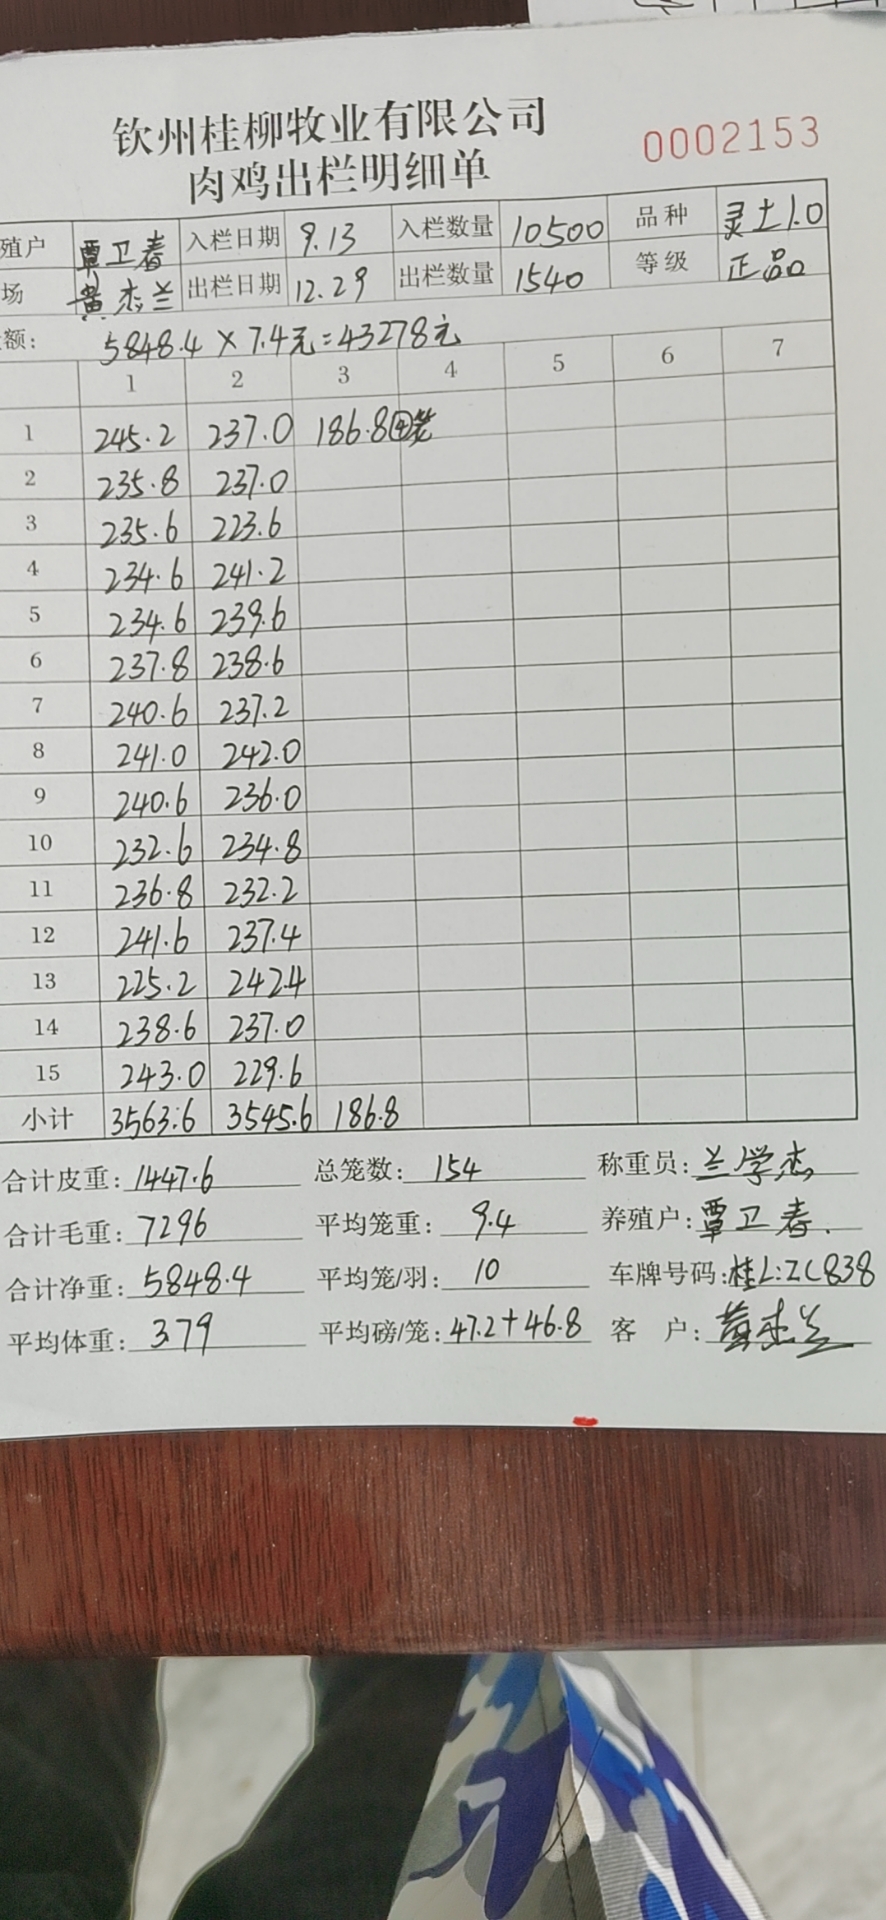 钦州桂柳牧业有限公司
0002153
肉鸡出栏明细单
殖户 覃卫春 入栏日期 9.13 入栏数量 10500 品种 灵土1.0
场 黄杰兰 出栏日期 12.29 出栏数量 1540 等级 正品
额: 5848.4×7.4元=43278元
1 2 3 4 5 6 7
1 245.2 237.0 186.8④笼
2 235.8 237.0
3 235.6 223.6
4 234.6 241.2
5 234.6 239.6
6 237.8 238.6
7 240.6 237.2
8 241.0 242.0
9 240.6 236.0
10 232.6 234.8
11 236.8 232.2
12 241.6 237.4
13 225.2 242.4
14 238.6 237.0
15 243.0 229.6
小计 3563.6 3545.6 186.8
合计皮重: 1447.6 总笼数: 154 称重员: 兰学杰
合计毛重: 7296 平均笼重: 9.4 养殖户: 覃卫春.
合计净重: 5848.4 平均笼/羽: 10 车牌号码: 桂L:ZC838
平均体重: 3.79 平均磅/笼: 47.2+46.8 客 户: 黄杰兰